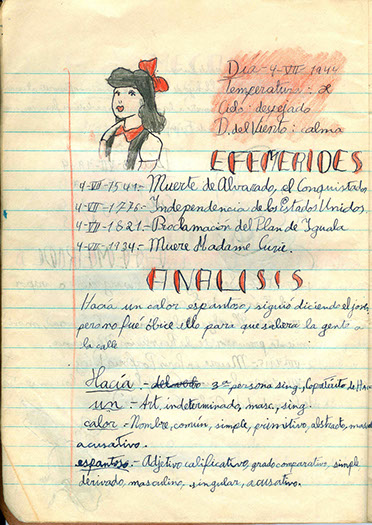 Dia - 4 - VII - 1944
Temperatura:
Cielo: despejado
D. del Viento: calma
EFEMERIDES
4-VII-1541.- Muerte de Alvarado, el Conquistado
4-VII-1776.- Independencia de los Estados Unidos
4-VII-1821.- Proclamación del Plan de Iguala
4-VII-1934.- Muere Madame Curie.
ANALISIS
Hacía un calor espantoso, siguió diciendo el
pero no fué óbice ello para que saliera la gente a
la calle
Hacía.- 3ª persona sing.,
un.- Art. indeterminado, masc., sing.
calor.- Nombre, común, simple, primitivo, abstracto,
acusativo.
espantoso.- Adjetivo calificativo, grado comparativo, simple
derivado, masculino, singular, acusativo.